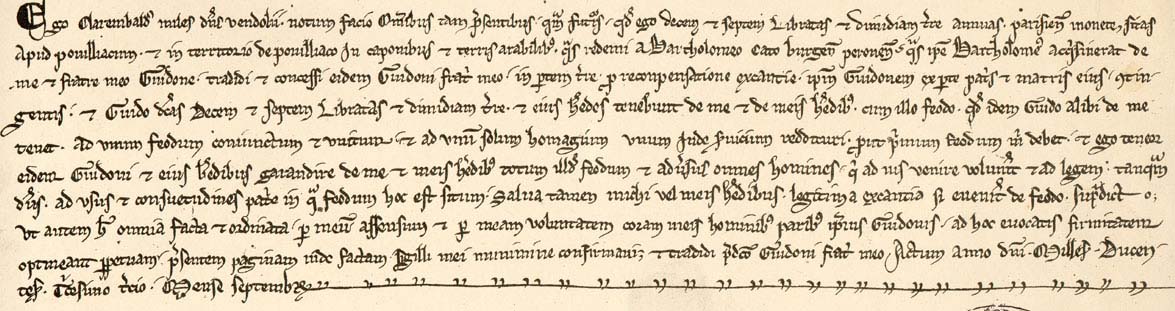 Ego Clarembald' miles dn̄s vendolii · notum facio Omībus tam p̄sentibus · qm̄ futur̄s · qd̄ ego decem & septem Libratas & dimidiam t̄re annuas · parisien̄ monete, sitas
Apud pouilliacum · & in territorio de pouilliaco In caponibus & terris arabilib' · qs̄ redemi A Bartholomeo Cato burgen̄ peronen̄ · qs̄ ip̄e Bartholome' acqsīuerat de
me & fratre meo Guidone · tradidi & concessi eidem Guidoni frat̄ meo · in ꝑtem t̄re · ꝓ recompensatione excantie · ip̄m Guidonem ex ꝑte pat̄s & matris eius · ꝯtin
gentis · & Guido dc̄as Decem & septem Libratas & dimidiam t̄re · & eius h̄edes tenebunt de me & de meis h̄edib' · cum illo feodo · qd̄ idem Guido alibi de me
tenet · ad unum feodum coniunctum & unitum · & ad unū solum homagium unum Inde s̄uicium reddituri · ꝓut p̄mum feodum m̄ debet · & ego teneor
eidem Guidoni & eius h̄edibus garandire de me & meis h̄edib' totum illd̄ feodum & adūsus omnes homines · q̄ ad ius venire volūint & ad legem · tanqm̄
dn̄s · ad usus & consuetudines pat̄e in q̄ feodum hoc est situm · Salua tamen michi vel meis h̄edibus · legitima excantia si euenīt de feodo · sup̄dict o;
Ut autem h̄ omnia facta & ordinata · ꝑ meum assensum & ꝑ meam voluntatem coram meis hominib' parib' ip̄ius Guidonis · ad hoc euocatis firmitatem
optineant ꝑpetuam · p̄sentem paginam inde factam · sigilli mei munimine confirmaui; & tradidi p̄dc̄o Guidoni frat̄ meo · Actum anno dn̄i · Milles̄ · Ducen
tes̄ · T̄cesimo t̄cio · Mense septembr̄